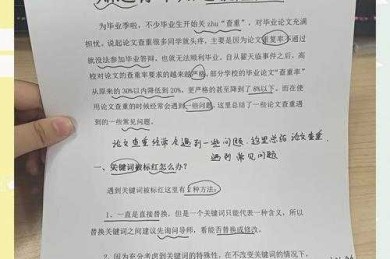 为毕业季啦，不少毕业生开始关 zhu“查重”，对毕业论文充满
担忧，说起论文查重很多同学就头疼，主要是因为论文重复率多了通过
就没法参加毕业答辩，也就无法顺利毕业。自从翟天临事件之后，高
校对论文的查重率要求的越来越严格，但分学校的毕业论文“查重率”
从原来的30%以内降低到20%，更严格的甚至降到了8%以下。而在使
用论文查重的时候经常会遇到一些问题，这里总结了一些论文查重遇
到的一些常见问题。
论文查重经常会遇到一些问题，这里总结论文查重
遇到常见问题
一、关键词被标红怎么办？
遇到关键词被标红这里有2种方法：
1、一直是直接替换，但是一个关键词只能代表一种含义，所以
替换关键词之间建议先询问导师，看能否替换或修改。
2、因为充分考虑到关键词的特殊性，在不改变关键词的情况下，